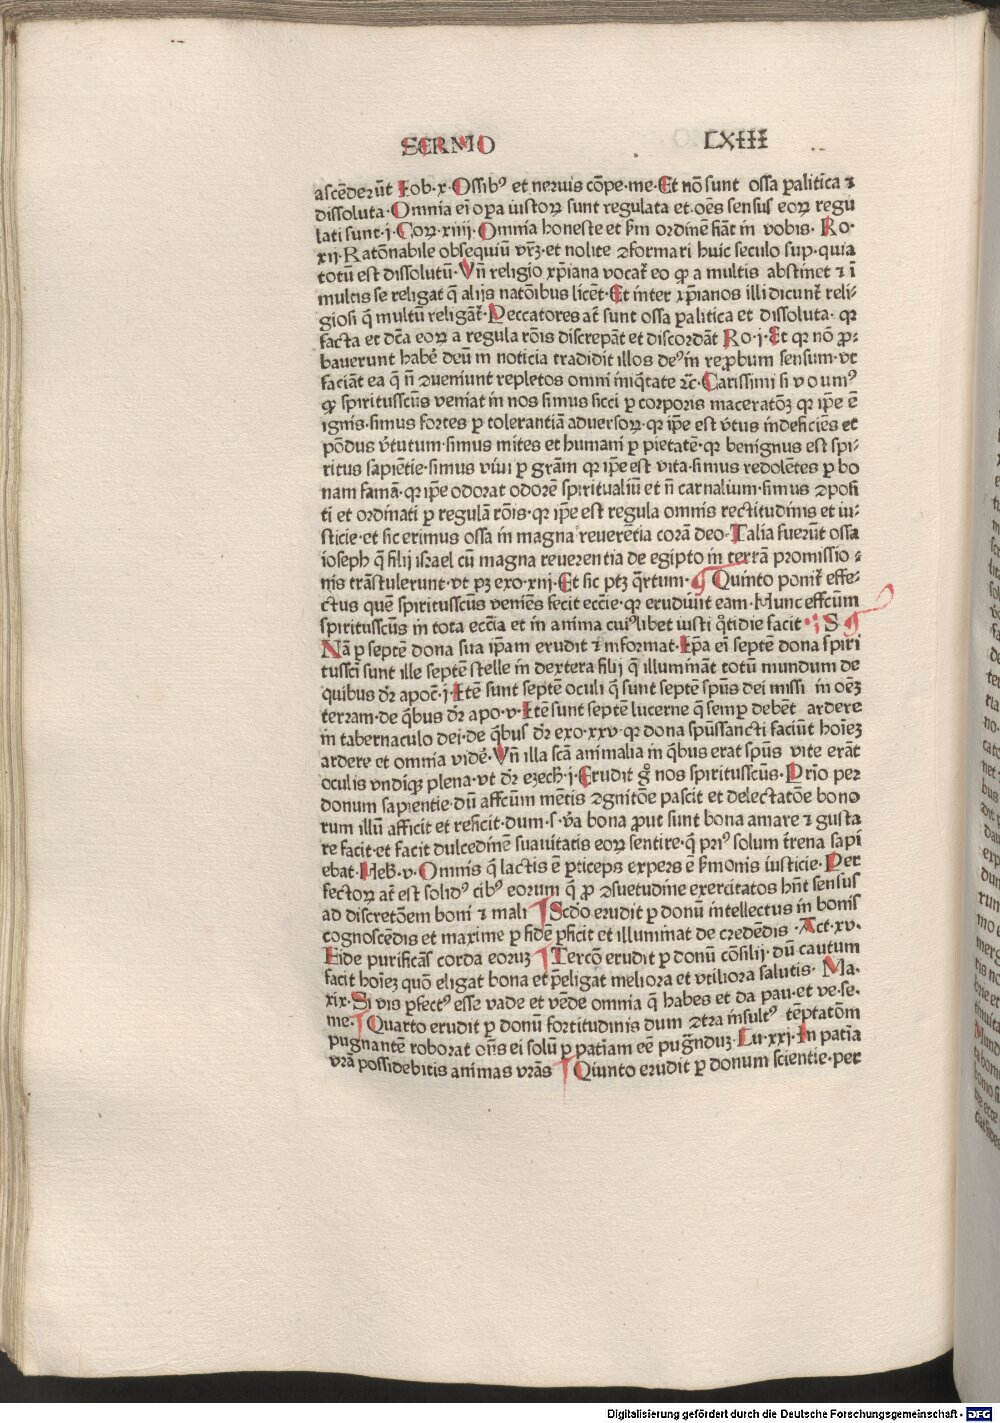 SERMO LXIII
ascēderūt Iob·x·Ossibꝰ et neruis cōpe·me·Et nō sunt ossa ꝑalitica ⁊
dissoluta·Omnia ei᷒ oꝑa iustoꝝ sunt regulata et·oēs sensus eoꝝ regu
lati sunt·j·Coꝝ·xiiij·Omnia honeste et ẜm ordinē fiāt in vobis· Ro·
xij·Ratōnabile obsequiū vr̄ꝫ·et nolite ꝯformari huic seculo sup·quia
totū est dissolutū·Vn̄ religio xp̄iana vocat᷑ eo ꝙ a multis abstinet ⁊ ī
multis se religat q̄ alijs natōnibus licēt·Et inter xp̄ianos illi dicunt᷑ reli-
giosi q̄ multū religāt᷑·Peccatores at̄ sunt ossa ꝑalitica et dissoluta· qꝛ
facta et dc̄a eoꝝ a regula rōis discrepāt et discordāt Ro·j·Et qꝛ nō ꝓ-
bauerunt habē deū in noticia tradidit illos deꝰ in reꝓbum sensum·vt
faciāt ea q̄ n̄ ꝯueniunt repletos omni iniq̄tate ⁊c̄·Carissimi si voumꝰ
ꝙ spiritusscūs veniat in nos simus sicci ꝑ corporis maceratōꝫ qꝛ ip̄e ē
ignis·simus fortes ꝑ tolerantiā aduersoꝝ·qꝛ ip̄e est v̄tus indeficiēs et
pōdus v̄tutum·simus mites et humani ꝑ pietatē·qꝛ benignus est spi-
ritus sapiētie·simus viui ꝑ grām qꝛ ip̄e est vita·simus redolētes ꝑ bo
nam famā·qꝛ ip̄e odorat odorē spiritualiū et n̄ carnalium·simus ꝯposi
ti et ordinati ꝑ regulā rōis·qꝛ ip̄e est regula omnis rectitudinis et iu-
sticie·et sic erimus ossa in magna reuerētia corā deo·Talia fuerūt ossa
ioseph q̄ filij israel cū magna reuerentia de egipto in terrā promissio-
nis trāstulerunt·vt pꝫ exo·xiij·Et sic ptꝫ q̄rtum· Quinto ponit᷑ effe-
ctus quē spiritusscūs veniēs fecit ecc̄ie·qꝛ erudiuit eam·Nunc effcūm
spiritusscūs in tota ecc̄ia et in anima cuiꝰlibet iusti q̄tidie facit·; S
Nā ꝑ septē dona sua ip̄am erudit ⁊ informat·Ip̄a ei᷒ septē dona spiri
tussc̄i sunt ille septē stelle in dextera filij q̄ illumināt totū mundum de
quibus dr̄ apoc̄·j·Itē sunt septē oculi q̄ sunt septē spūs dei missi in oēꝫ
terram·de q̄bus dr̄ apo·v·Itē sunt septē lucerne q̄ semꝑ debēt ardere
in tabernaculo dei·de q̄bus dr̄ exo·xxv·qꝛ dona spūssancti faciūt hoīeꝫ
ardere et omnia vidē·Vn̄ illa scā animalia in q̄bus erat spūs vite erāt
oculis vndiqꝫ plena·vt dr̄ ezech·j·Erudit gͦ nos spiritusscūs·Prīo per
donum sapientie·dū affcūm mētis ꝯgnitōe pascit et delectatōe bono
rum illū afficit et reficit·dum·s·v̄a bona ꝓut sunt bona amare ⁊ gusta
re facit·et facit dulcedinē suauitatis eoꝝ sentire·q̄ priꝰ solum t̄rena sapi
ebat·Heb·v·Omnis q̄ lactis ē ꝑticeps expers ē ẜmonis iusticie·Per
fectoꝝ at̄ est solidꝰ cibꝰ eorum q̄ ꝓ ꝯsuetudine exercitatos hn̄t sensus
ad discretōem boni ⁊ mali Scd̄o erudit ꝑ donū intellectus in bonis
cognoscēdis et maxime ꝑ fidē ꝑficit et illuminat de credēdis ·Act·xv·
Fide purificās corda eoruꝫ Tercō erudit ꝑ donū cōsilij·dū cautum
facit hoīeꝫ quō eligat bona et p̄eligat meliora et vtiliora salutis· Ma·
xix·Si vis ꝑfectꝰ esse vade et vēde omnia q̄ habes et da pau·et ve·se·
me· Quarto erudit ꝑ donū fortitudinis dum ꝯtra insultꝰ tēptatōm
pugnantē roborat on̄s ei solū ꝑ patiam eē pug̃nduꝫ·Lu·xxj·In patīa
vrā possidebitis animas vrās Qiunto erudit ꝑ donum scientie·per
Digitalisierung gefördert durch die Deutsche Forschungsgemeinschaft - DFG